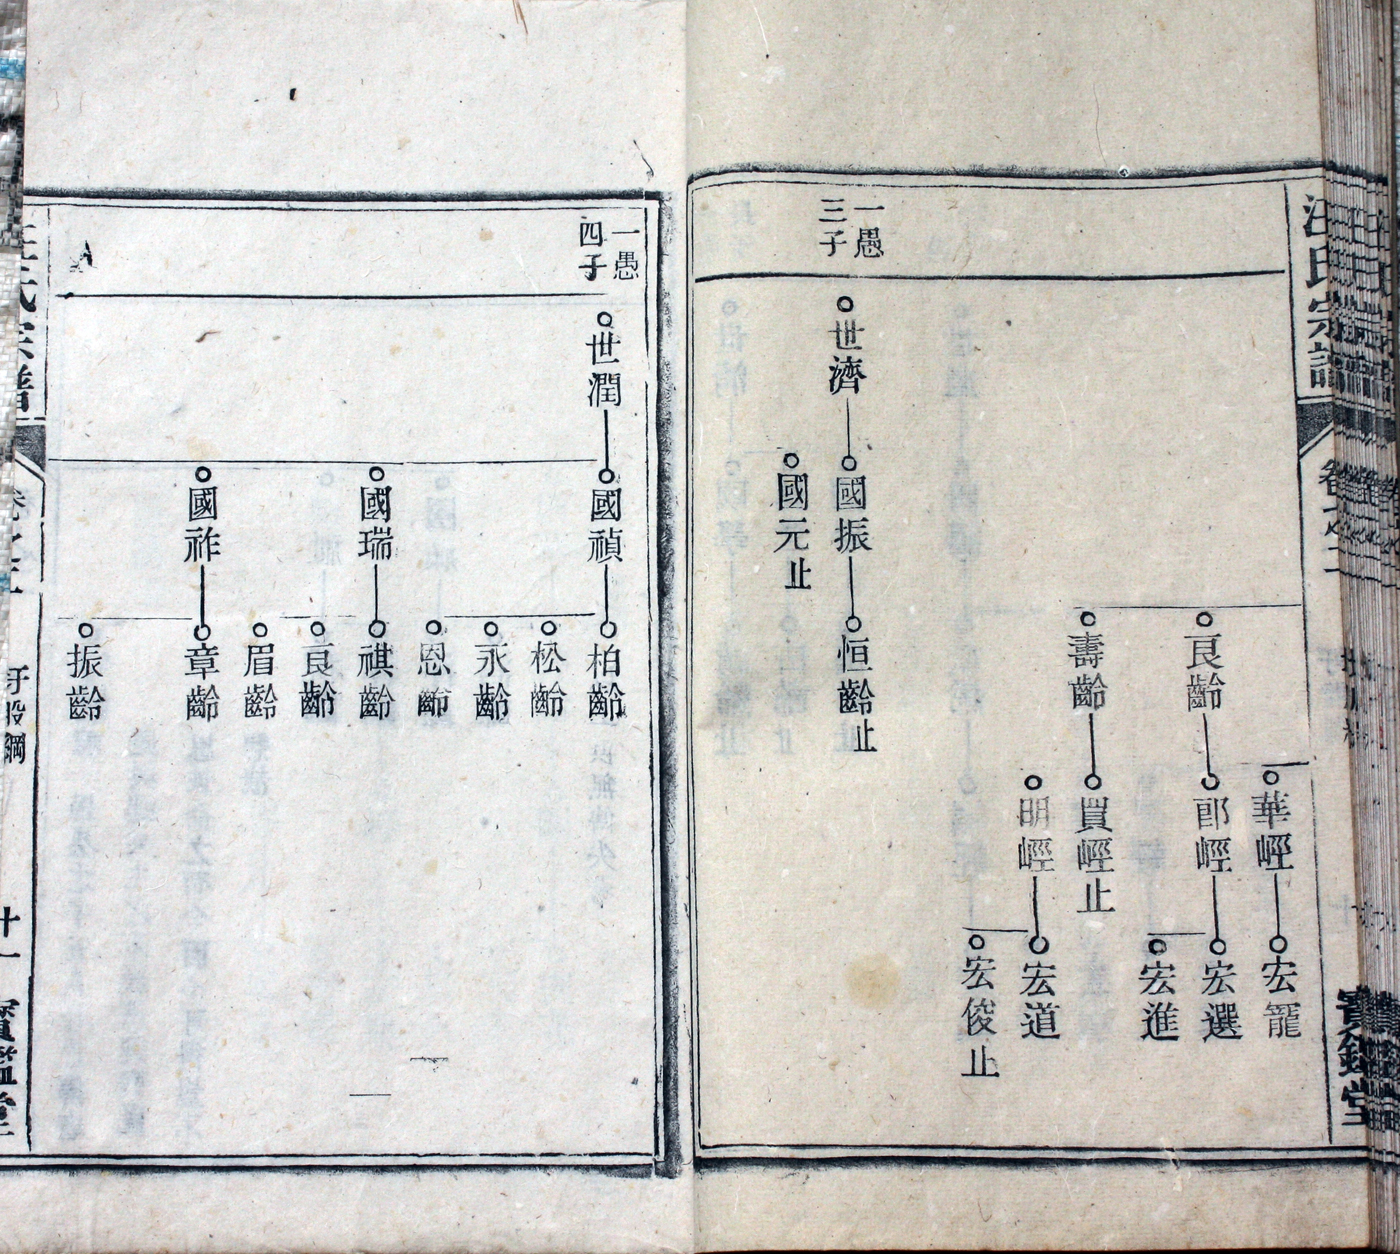 汪氏宗譜
卷之二
寶鑑堂
華崼
宏寵
良齡
郎崼
宏選
宏進
壽齡
買崼止
明崼
宏道
宏俊止
一愚
三子
世濟
國振
恒齡止
國元止
一愚
四子
世潤
國禎
柏齡
松齡
永齡
恩齡
國瑞
祺齡
良齡
眉齡
國祚
章齡
振齡
汪氏宗譜
卷之二
十一
寶鑑堂